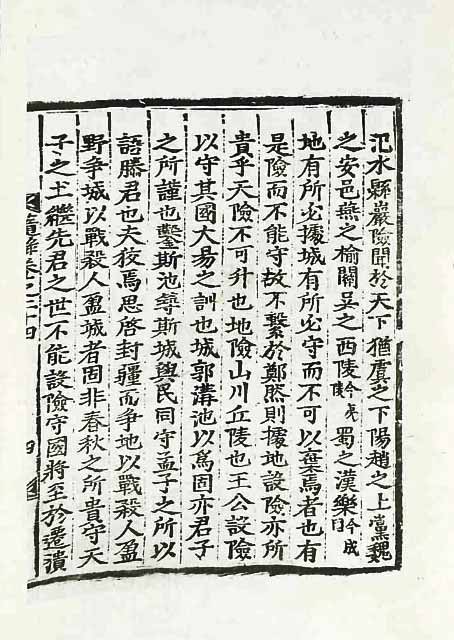 汜水縣巖險聞於天下猶虞之下陽趙之上黨魏
之安邑燕之榆關吳之西陵今夷陵蜀之漢樂今成
地有所必據城有所必守而不可以棄焉者也有
是險而不能守故不繫於鄭然則據地設險亦所
貴乎天險不可升也地險山川丘陵也王公設險
以守其國大易之訓也城郭溝池以爲固亦君子
之所謹也鑿斯池築斯城與民同守孟子之所以
語滕君也夫狡焉思啓封疆而爭地以戰殺人盈
野爭城以戰殺人盈城者固非春秋之所貴守天
子之土繼先君之世不能設險守國將至於遷潰
卷之二十四
四